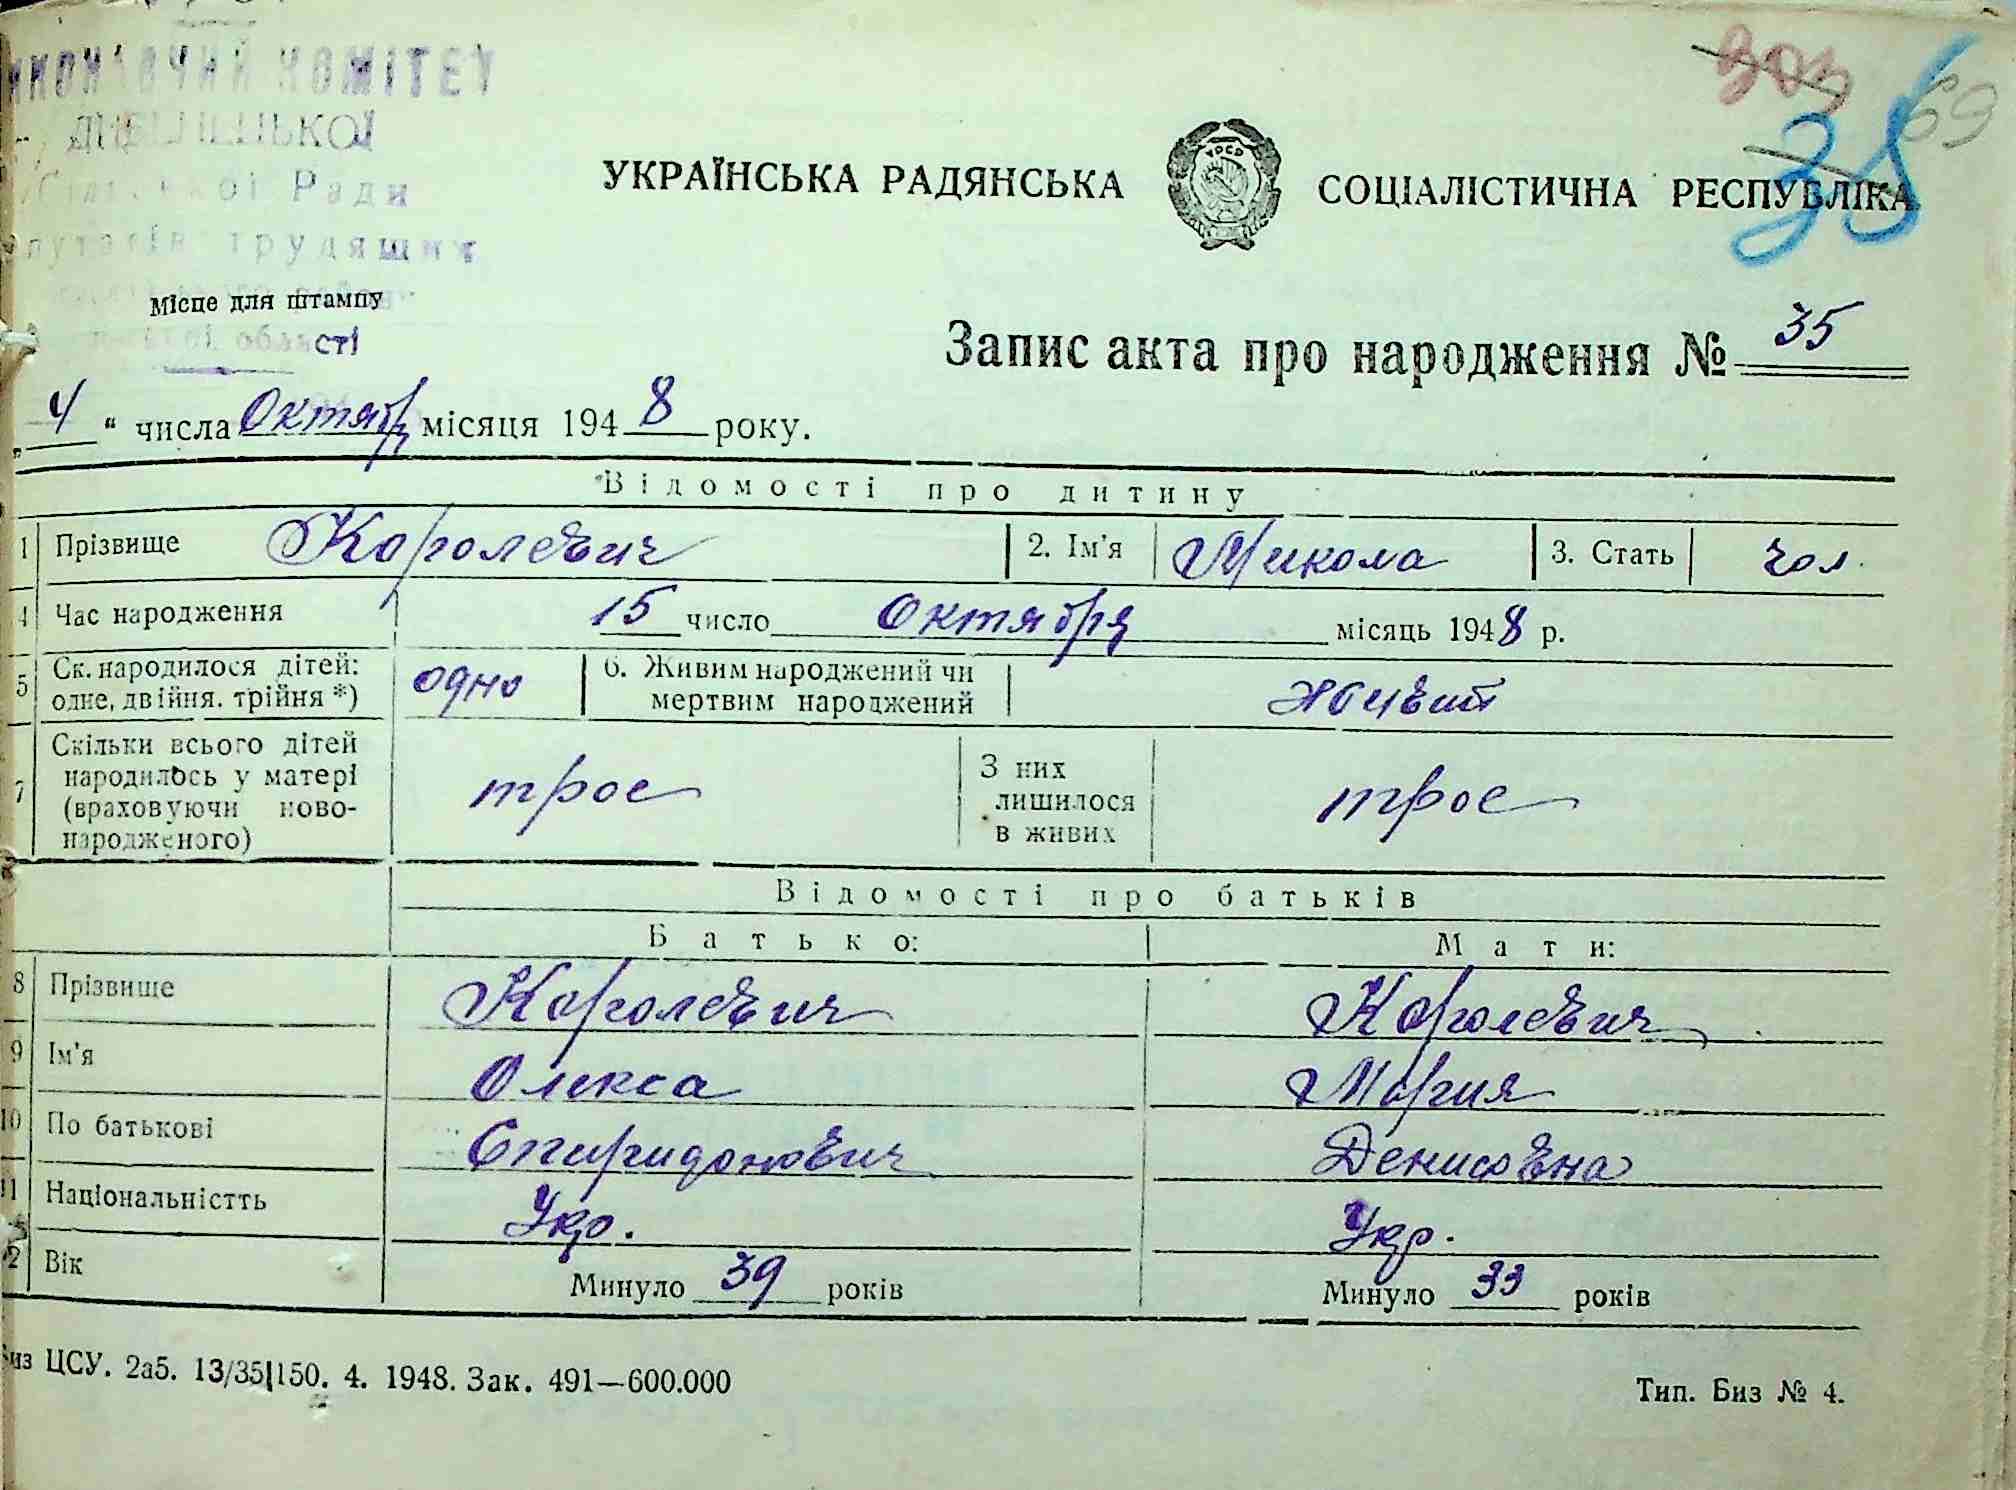 КОМІТЕТ
Ради
трудящих
Місце для штампу
області
303
69
35
УКРАЇНСЬКА РАДЯНСЬКА СОЦІАЛІСТИЧНА РЕСПУБЛІКА
УРСР
Запис акта про народження № 35
4 " числа Октября місяця 1948 року.
Відомості про дитину
1 Прізвище Королевич 2. Ім'я Микола 3. Стать чол.
4 Час народження 15 число Октября місяць 1948 р.
5 Ск. народилося дітей: одно 6. Живим народжений чи
одне, двійня. трійня *) мертвим народжений живий
7 Скільки всього дітей
народилось у матері трое З них
(враховуючи ново- лишилося трое
народженого) в живих
Відомості про батьків
Батько: Мати:
8 Прізвище Королевич Королевич
9 Ім'я Олекса Мария
10 По батькові Спиридонович Денисовна
11 Національністть Укр. Укр.
12 Вік Минуло 39 років Минуло 33 років
Биз ЦСУ. 2а5. 13/35|150. 4. 1948. Зак. 491—600.000 Тип. Биз № 4.